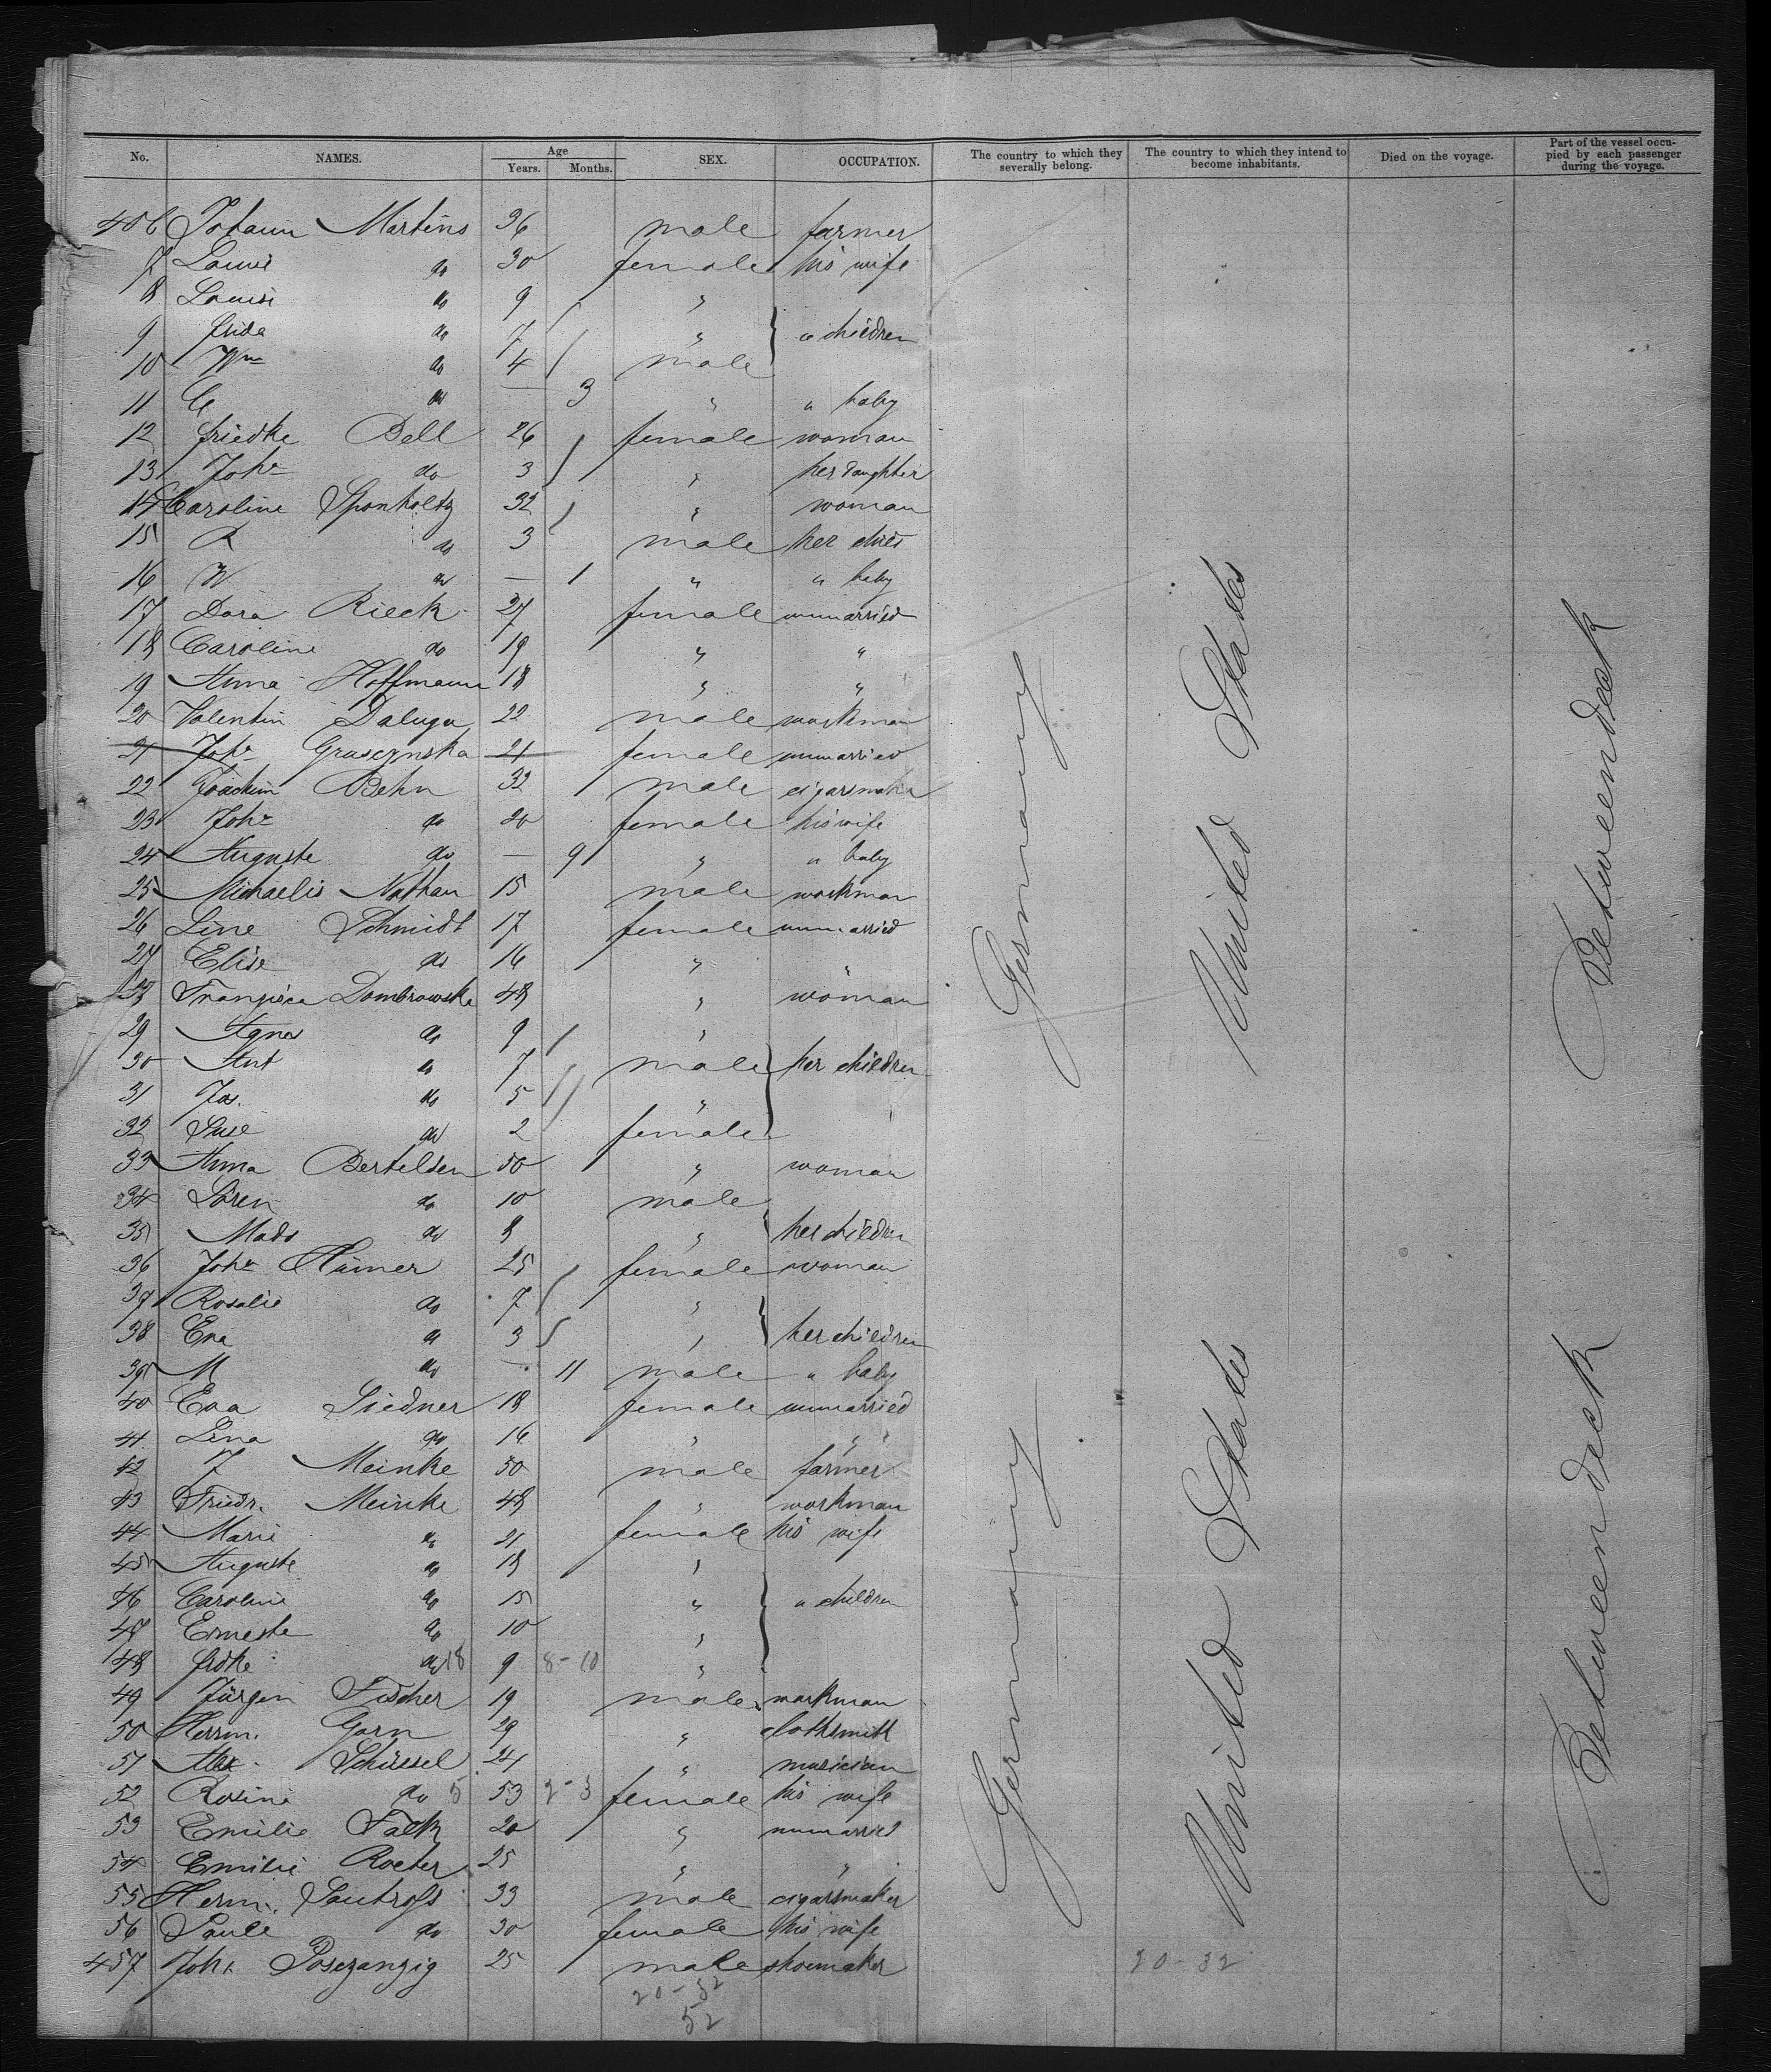 No. NAMES. Age Years. Months. SEX. OCCUPATION. The country to which they severally belong. The country to which they intend to become inhabitants. Died on the voyage. Part of the vessel occupied by each passenger during the voyage.
406 Johann Martens 36 male farmer
7 Louise do 30 female his wife
8 Louise do 9 "
9 Frida do 7 " " children
10 Wm do 4 male
11 C do — 3 " " baby
12 Friedke Bell 26 female woman
13 Joha do 3 " her daughter
14 Caroline Sponholtz 32 " woman
15 R do 3 male her child
16 W do — 1 " " baby
17 Dora Rieck 27 female unmarried
18 Caroline do 19 " "
19 Anna Hoffmann 18 " "
20 Valentin Daluga 22 male workman
21 Joha Gruscznska 21 female unmarried
22 Joachim Behn 32 male cigarsmaker
23 Joha do 20 female his wife
24 Auguste do — 9 " " baby
25 Michaelis Nathan 15 male workman
26 Line Schmidt 17 female unmarried
27 Elise do 16 " "
28 Franzisca Dombrowska 48 " woman
29 Agnes do 9 "
30 Ant do 7 male her children
31 Jos. do 5 "
32 Suse do 2 female
33 Anna Bertelsen 50 " woman
34 Sören do 10 male
35 Mads do 8 " her children
36 Joha Hümer 25 female woman
37 Rosalie do 7 "
38 Eva do 3 " her children
39 M do — 11 male " baby
40 Eva Siedner 18 female unmarried
41 Lena do 16 " "
42 J Meinke 50 male farmer
43 Friedr. Meinke 48 " workman
44 Marie do 21 female his wife
45 Auguste do 18 "
46 Caroline do 15 " " children
47 Erneste do 10 "
48 Frdke do 18 9 8-10 "
49 Jürgen Fischer 19 male workman
50 Herrm. Gorn 29 " clothsmith
51 Alex Schüssel 24 " musician
52 Rosine do 5 53 2-3 female his wife
53 Emilie Falk 20 " unmarried
54 Emilie Roeter 25 " "
55 Herm. Sautross 33 male cigarsmaker
56 Paule do 30 female his wife
457 Joh. Posezanzig 25 male shoemaker
20-32
52
20-32
Germany
Germany
United States
United States
Betweendeck
Betweendeck